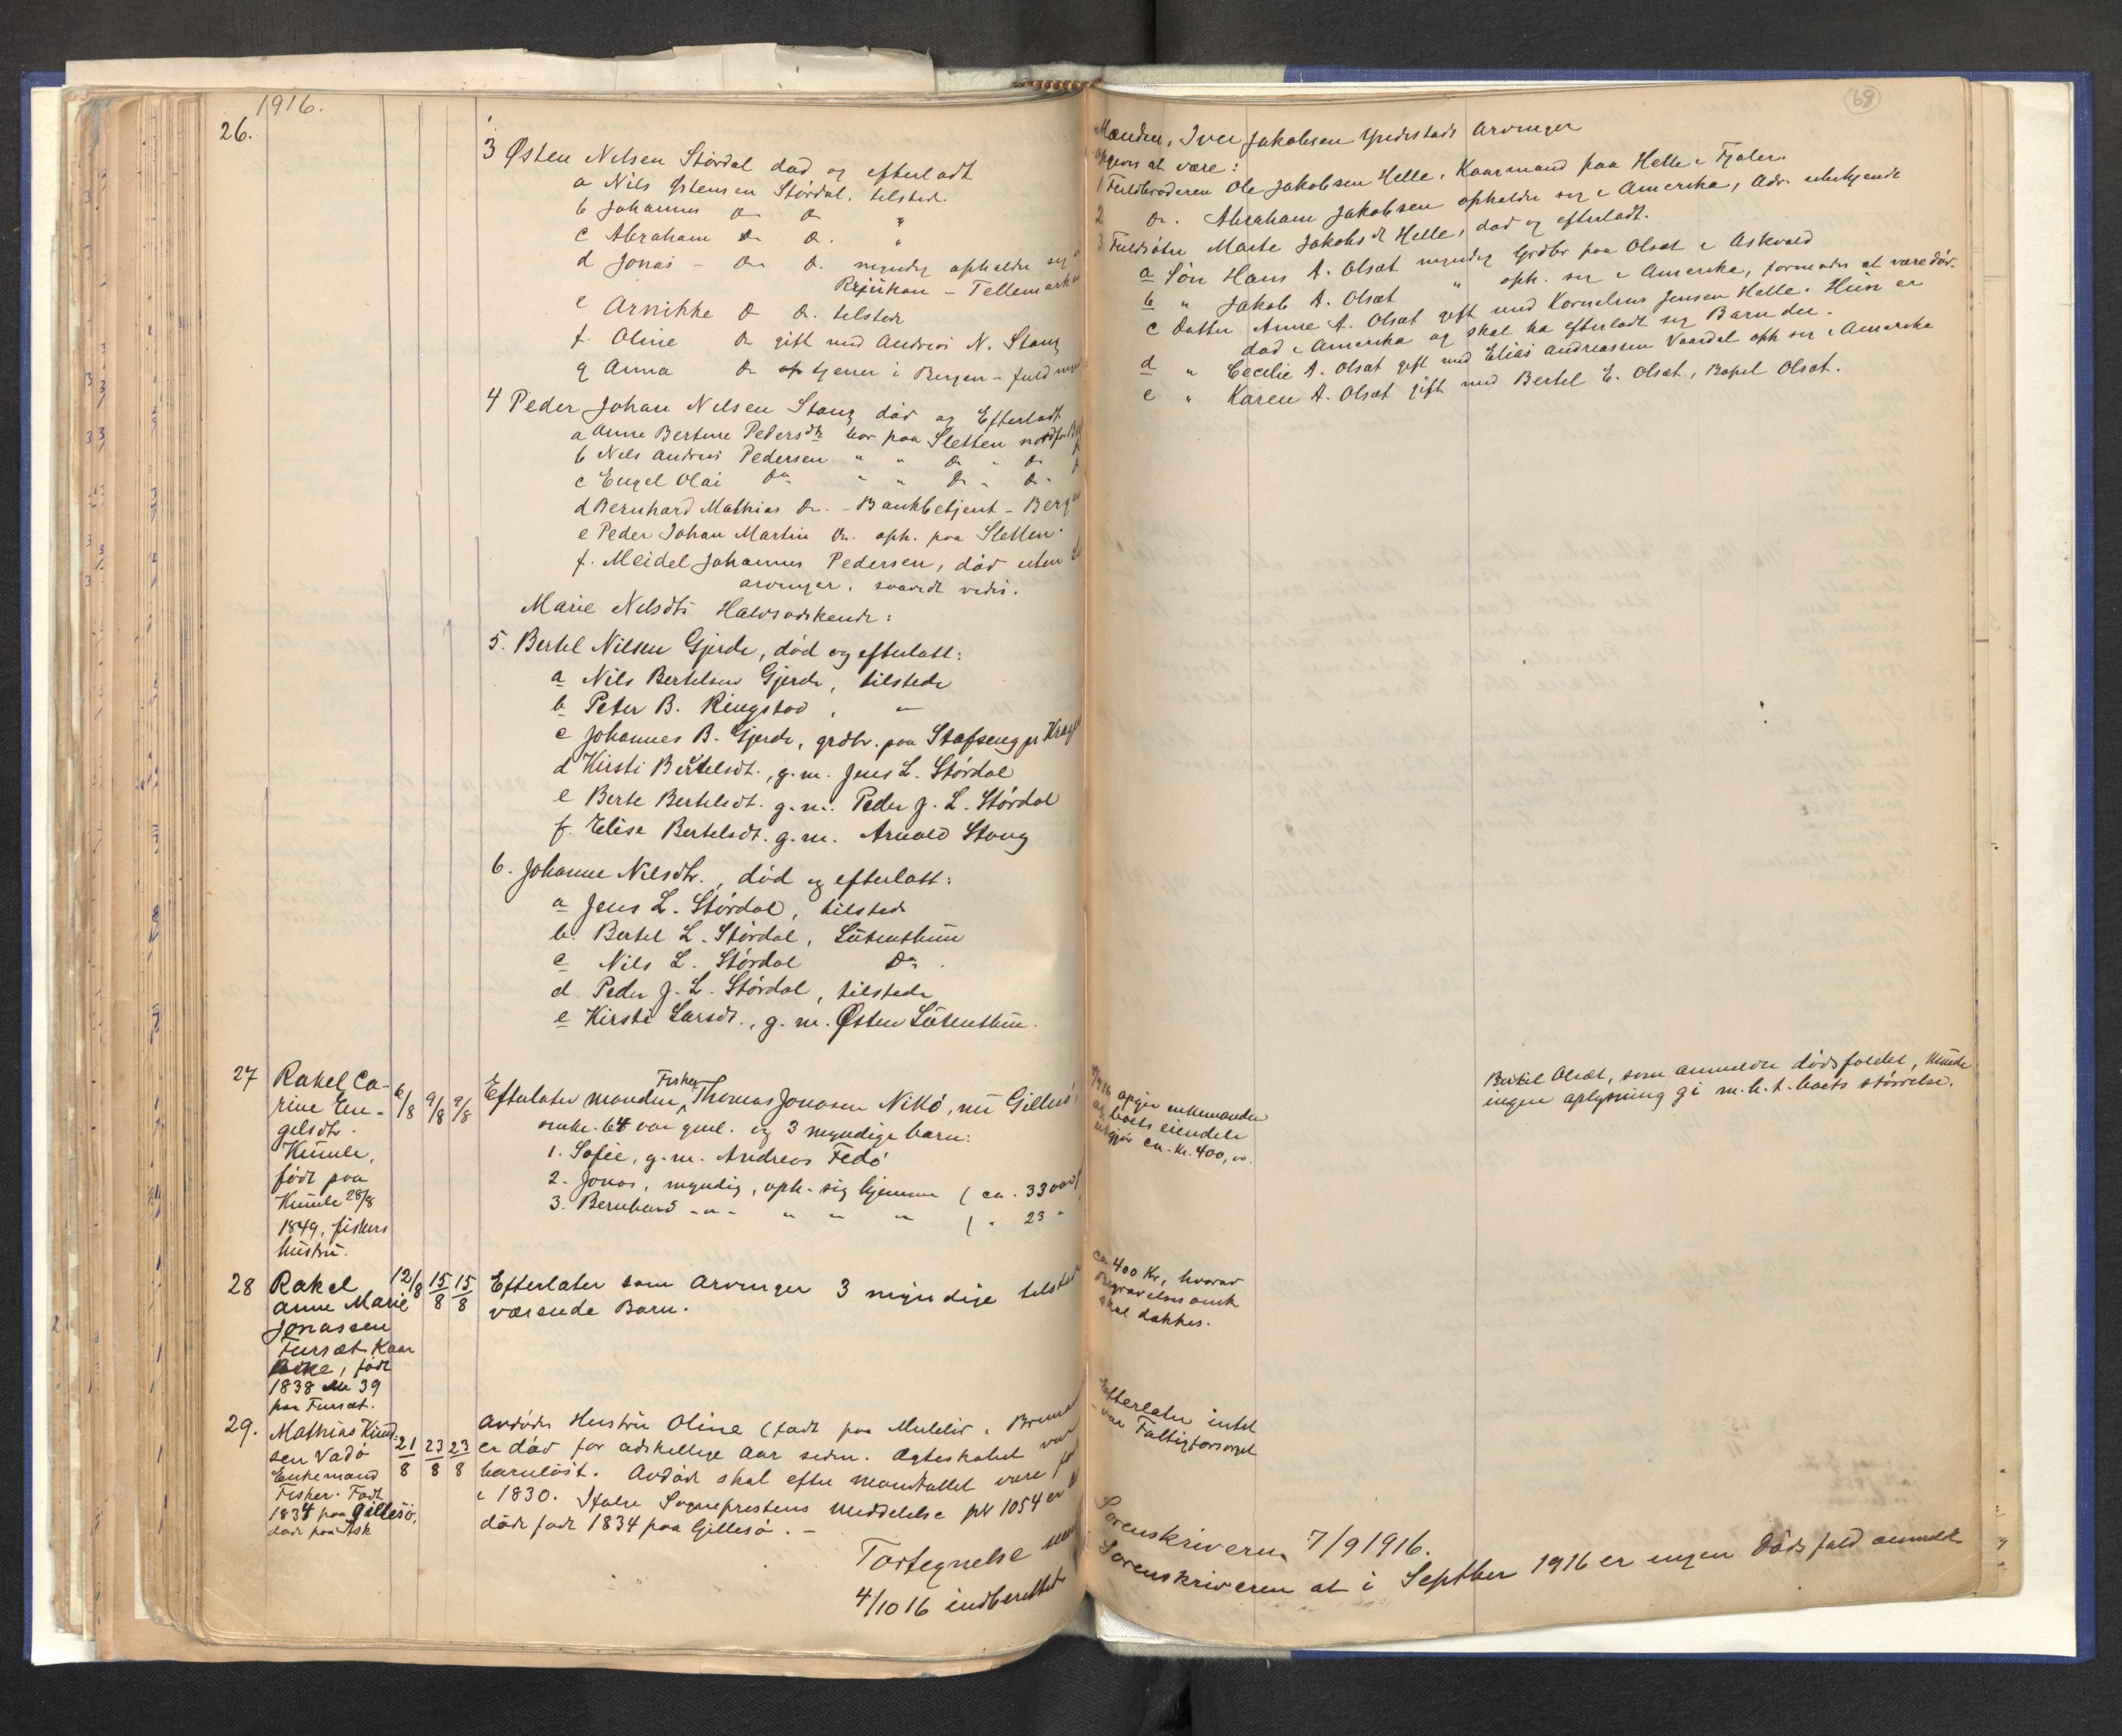 1916.
26.
3 Østen Nilsen Stórdal död og efterladt
a Nils Østensen Stórdal, tilsted.
b Johannes Do Do "
c Abraham Do Do. "
d Jonas - Do Do. myndig opholder sig
Rjukan - Tellemarken
e Arnikke Do Do. tilstede
f. Oline Do gift med Andreas N. Stang
g Anna Do tjener i Bergen - fuld
4 Peder Johan Nilsen Stang död og Efterladt
a Anne Bertine Pedersdtr bor paa Sletten
b Nils Andreas Pedersen " " Do " Do
c Engel Olai Do " " Do " Do
d Bernhard Mathias Do. - Bankbetjent - Bergen
e Peder Johan Martin Do. oph. paa Sletten.
f. Meidel Johannes Pedersen, död uten
arvinger, saavidt vides.
Marie Nilsdts Halvsødskende:
5. Bertel Nilsen Gjerde, död og efterlatt:
a Nils Bertelsen Gjerde, tilstede
b Peter B. Ringstad, "
c Johannes B. Gjerde, grdbr. paa Stafseng pr
d Kirsti Bertelsdt., g.m. Jens L. Stórdal
e Berte Bertelsdt. g.m. Peder J. L. Stórdal
f. Elise Bertelsdt. g.m. Arnold Stang
6. Johanne Nilsdtr., död og efterlatt:
a Jens L. Stórdal, tilstede
b. Bertel L. Stórdal, Lütenthun
c Nils L. Stórdal Do.
d. Peder J. L. Stórdal, tilstede
e Kirsti Larsdt., g.m. Østen Lütenthun.
27 Rakel Ca-
rine En-
gelsdtr.
Kumle,
født paa
Kumle 28/8
1849, fiskers
hustru.
6/8 9/8 9/8
Efterlater manden, Fisker Thomas Jonasen Nikkö, nu Gillesö,
omkr. 64 aar gml. og 3 myndige barn:
1. Sofie, g.m. Andreas Fedö
2. Jonas, myndig, oph. sig hjemme (ca. 33 aar)
3. Bernhard - " - " " " ( " 23 "
28 Rakel
Anne Marie
Jonassen
Fursæt Kaar
født
1838 39
paa Fursæt.
12/8 15/8 15/8
Efterlater som Arvinger 3 myndige tilsted
værende Barn.
29. Mathias Knud-
sen Vadö
Enkemand
Fisker. Født
1834 paa Gillesö,
död paa Ask
21/8 23/8 23/8
Avdödes Hustru Oline (født paa i
er död for adskellige Aar siden. Ægteskabet var
barnlöst. Avdöde skal efter mandtallet være
i 1830. Ifølge Sogneprestens meddelelse pkt 1054 er
döde født 1834 paa Gillesö. -
Fortegnelse
4/10 16 indberettet
68
Manden, Iver Jakobsen arvinger
opgives at være:
1 Fuldbroderen Ole Jakobsen Helle, Kaarmand paa Helle i Fjaler.
2 Do. Abraham Jakobsen opholder sig i Amerika, Adr. ubekjendt
3 Fuldsöster Marte Jakobsdt Helle, död og efterladt.
a Sön Hans A. Olsæt myndig Grdbr paa Olsæt i Askvold
b " Jakob A. Olsæt " oph. sig i Amerika, formodes at være död.
c Datter Anne A. Olsæt gift med Kornelius Jensen Helle. Hun er
död i Amerika og skal ha efterladt sig Barn der.
d " Cecilie A. Olsæt gift med Elias Andreassen Vaardal oph sig i Amerika
e " Karen A. Olsæt gift med Bertel E. Olsæt, Bopæl Olsæt.
opgir enkemanden
at boets eiendele
utgjör ca. kr. 400,oo.
Bertel Olsæt, som anmeldte dödsfaldet, kunde
ingen oplysning gi m.h.t. boets störrelse.
ca 400 Kr, hvorav
Begravelsesomk
skal dækkes.
Efterlater intet
- var Fattigforsörget
Sorenskriveren 7/9 1916.
Sorenskriveren at i Septber 1916 er ingen Dödsfald anmeldt